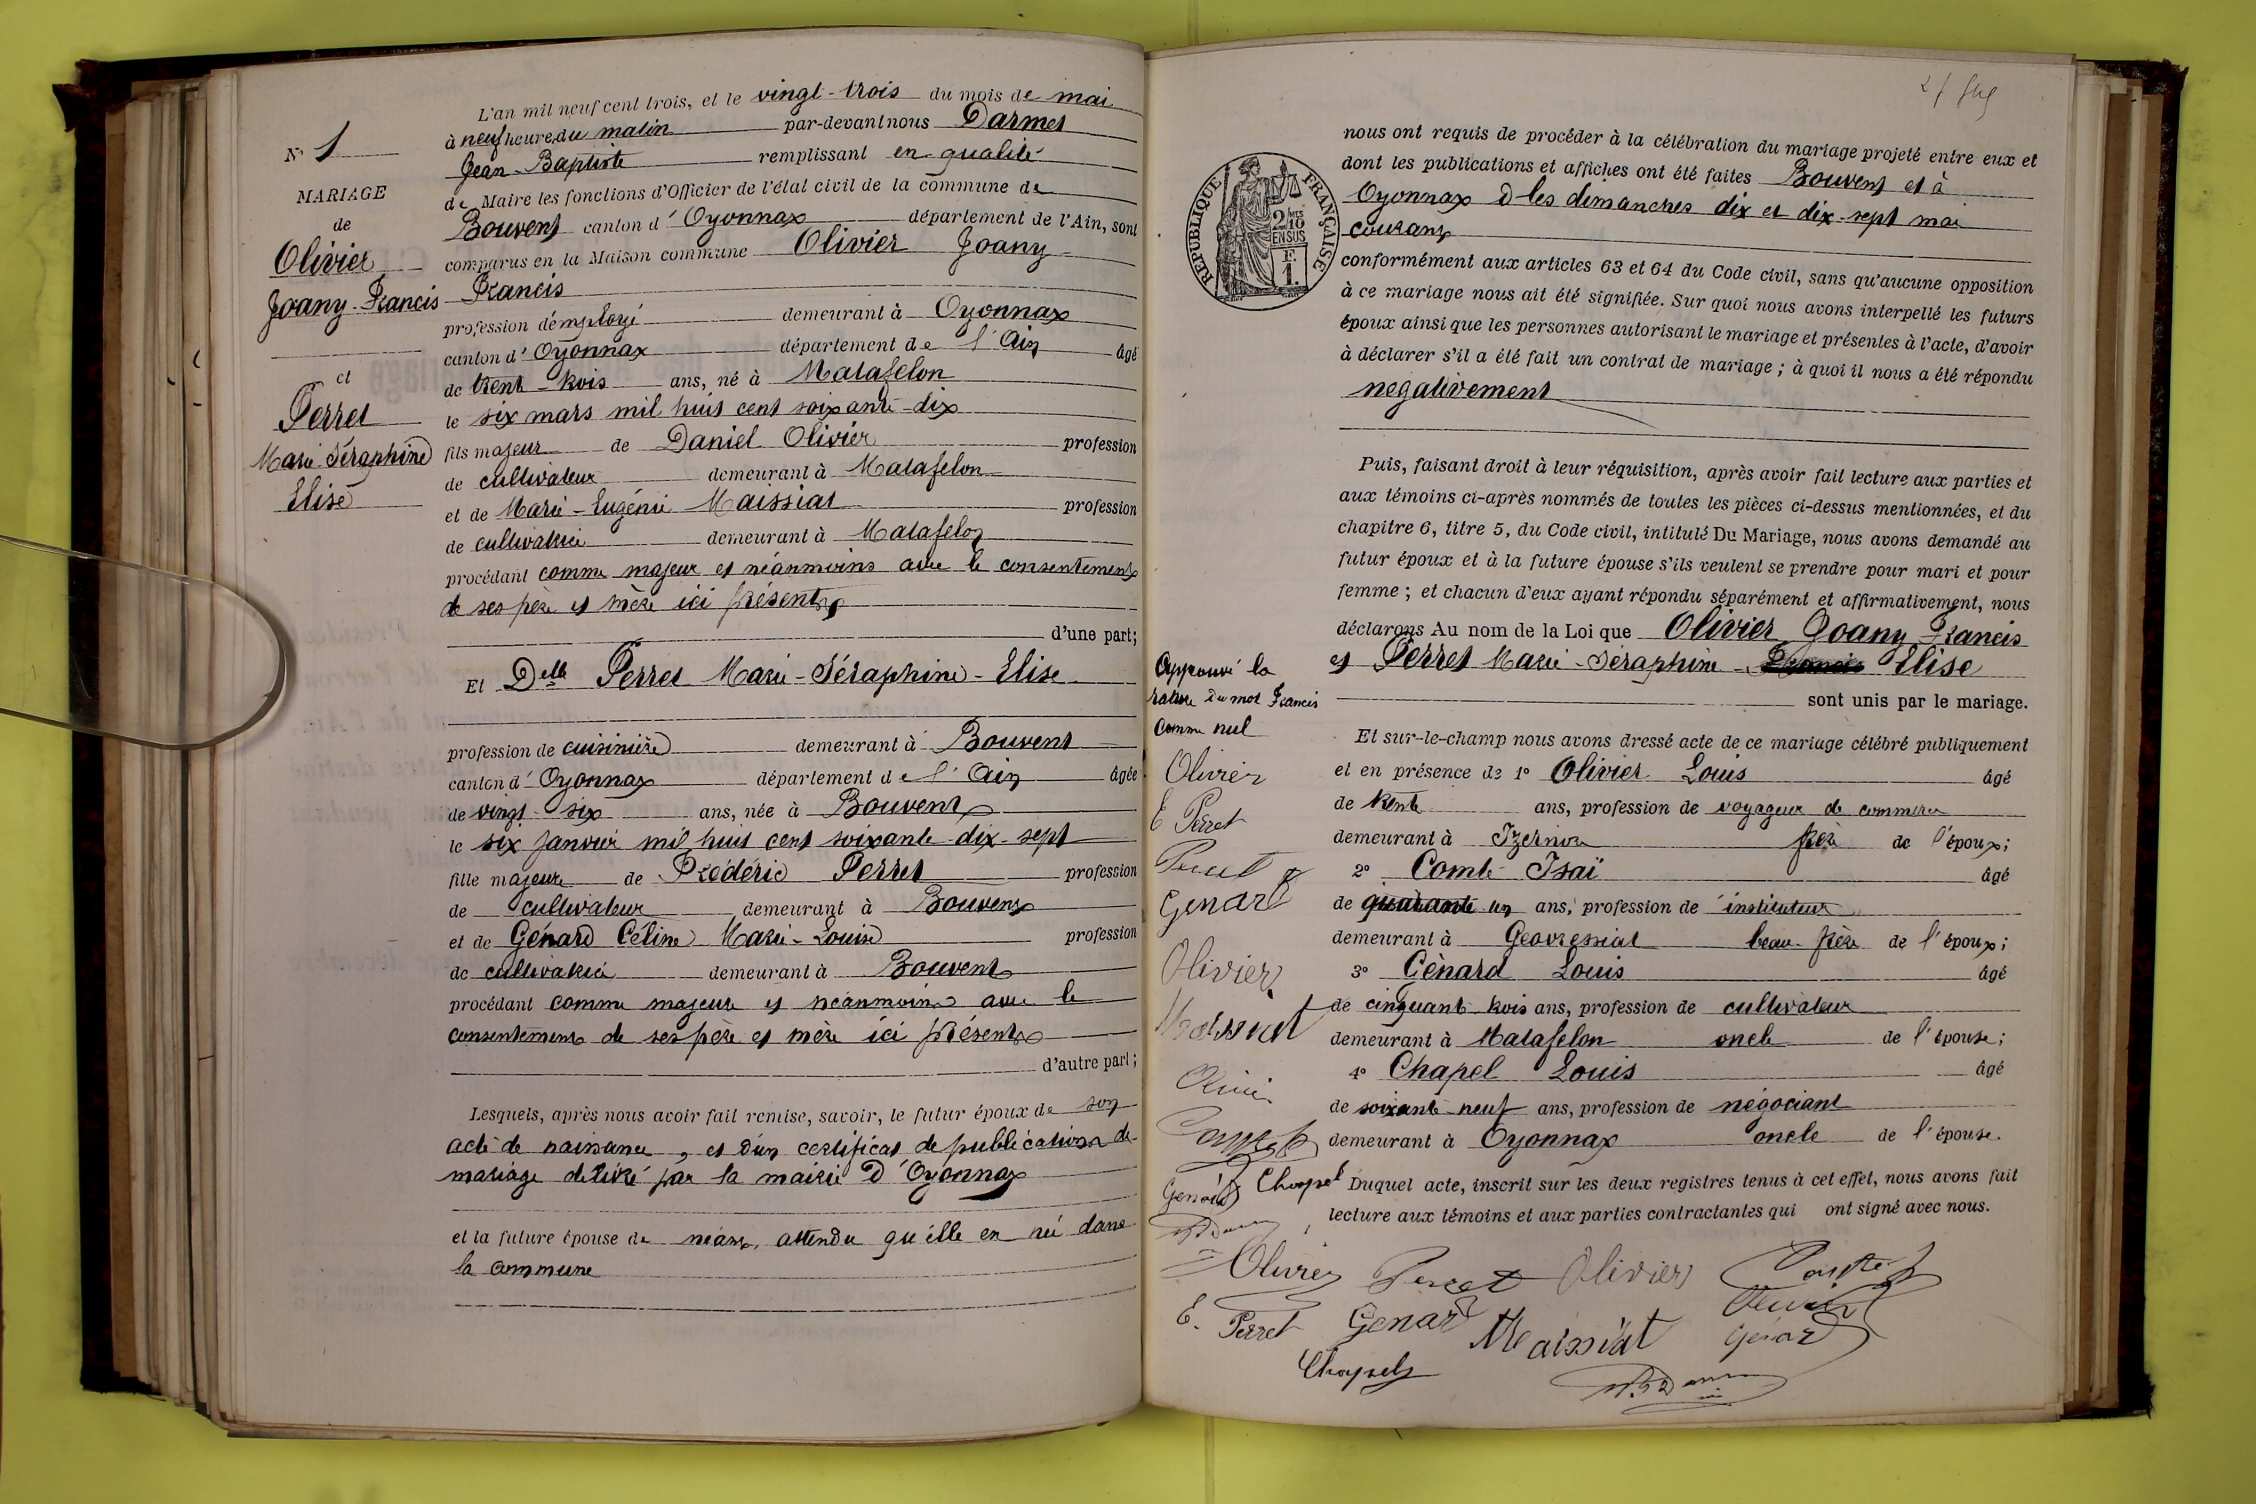 N° 1
MARIAGE
de
Olivier
Joany-Francis
et
Perret
Marie Séraphine
Elise
L'an mil neuf cent trois, et le vingt-trois du mois de mai
à neuf heure du matin par-devant nous Darmet
Jean-Baptiste remplissant en qualité
de Maire les fonctions d'Officier de l'état civil de la commune de
Bouvent canton d' Oyonnax département de l'Ain, sont
comparus en la Maison commune Olivier Joany
Francis
profession d'employé demeurant à Oyonnax
canton d' Oyonnax département de l'Ain âgé
de trente-trois ans, né à Matafelon
le six mars mil huit cent soixante-dix
fils majeur de Daniel Olivier profession
de cultivateur demeurant à Matafelon
et de Marie-Eugénie Maissiat profession
de cultivatrice demeurant à Matafelon
procédant comme majeur et néanmoins avec le consentement
de ses père et mère ici présents
d'une part;
Et Delle Perret Marie-Séraphine-Elise
profession de cuisinière demeurant à Bouvent
canton d' Oyonnax département de l'Ain âgée
de vingt-six ans, née à Bouvent
le six janvier mil huit cent soixante-dix-sept
fille majeure de Frédéric Perret profession
de cultivateur demeurant à Bouvent
et de Génard Céline Marie-Louise profession
de cultivatrice demeurant à Bouvent
procédant comme majeure et néanmoins avec le
consentement de ses père et mère ici présents
d'autre part;
Lesquels, après nous avoir fait remise, savoir, le futur époux de son
acte de naissance, et d'un certificat de publication de
mariage délivré par la mairie d'Oyonnax
et la future épouse de néant, attendu qu'elle en né dans
la commune
RÉPUBLIQUE FRANÇAISE
2/10
EN SUS
F.
1.
nous ont requis de procéder à la célébration du mariage projeté entre eux et
dont les publications et affiches ont été faites Bouvent et à
Oyonnax d les dimanches dix et dix-sept mai
courant
conformément aux articles 63 et 64 du Code civil, sans qu'aucune opposition
à ce mariage nous ait été signifiée. Sur quoi nous avons interpellé les futurs
époux ainsi que les personnes autorisant le mariage et présentes à l'acte, d'avoir
à déclarer s'il a été fait un contrat de mariage; à quoi il nous a été répondu
négativement
Puis, faisant droit à leur réquisition, après avoir fait lecture aux parties et
aux témoins ci-après nommés de toutes les pièces ci-dessus mentionnées, et du
chapitre 6, titre 5, du Code civil, intitulé Du Mariage, nous avons demandé au
futur époux et à la future épouse s'ils veulent se prendre pour mari et pour
femme; et chacun d'eux ayant répondu séparément et affirmativement, nous
déclarons Au nom de la Loi que Olivier Joany Francis
et Perret Marie-Séraphine Francis Elise
sont unis par le mariage.
Et sur-le-champ nous avons dressé acte de ce mariage célébré publiquement
et en présence de 1° Olivier Louis âgé
de trente ans, profession de voyageur de commerce
demeurant à Izernore frère de l'époux;
2° Comte Isaï âgé
de quarante-un ans, profession de instituteur
demeurant à Géovressiat beau-frère de l'époux;
3° Génard Louis âgé
de cinquante trois ans, profession de cultivateur
demeurant à Matafelon oncle de l'épouse;
4° Chapel Louis âgé
de soixante-neuf ans, profession de négociant
demeurant à Oyonnax oncle de l'épouse.
Duquel acte, inscrit sur les deux registres tenus à cet effet, nous avons fait
lecture aux témoins et aux parties contractantes qui ont signé avec nous.
Approuvé la
rature du mot Francis
comme nul
Olivier
E Perret
Perret
Genard
Olivier
Maissiat
Olivier
Génard Chapel
Olivier Perret Olivier
E. Perret Genard Maissiat Génard
Chapel